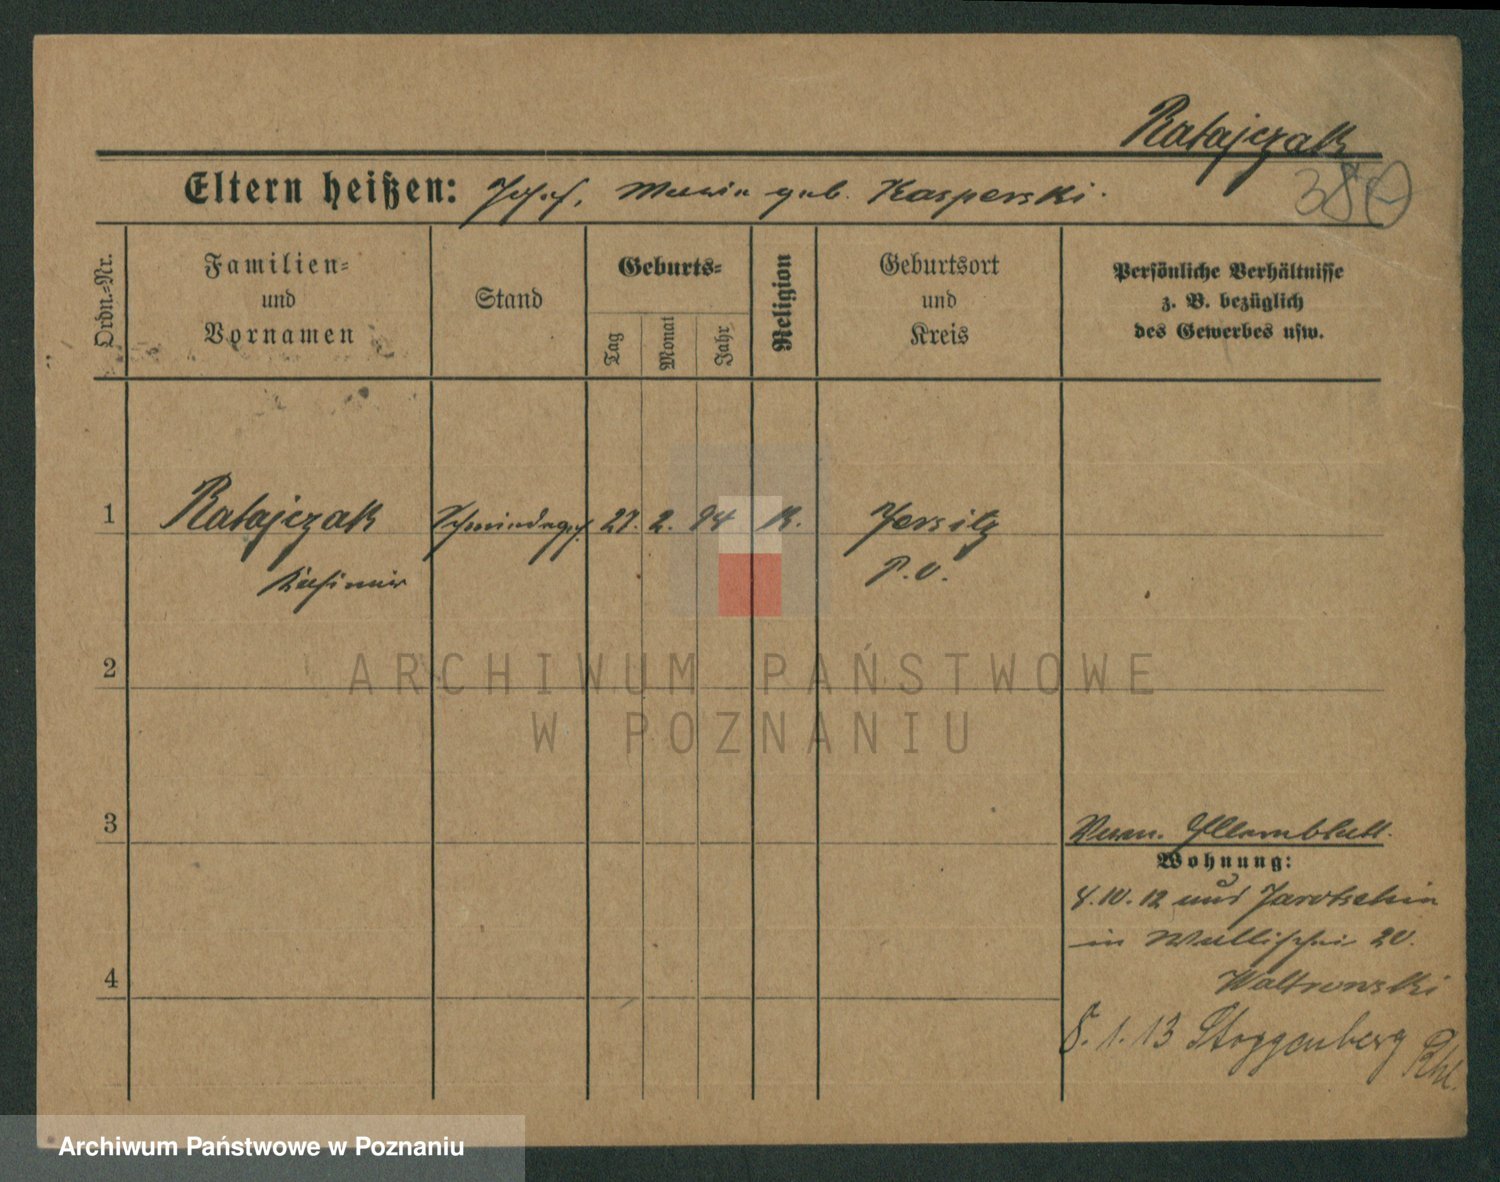 Ratajczak
Eltern heißen: Josef, Maria geb. Kasperski.
Ordn.-Nr.
Familien-
und
Vornamen
Stand
Geburts-
Tag
Monat
Jahr
Religion
Geburtsort
und
Kreis
Persönliche Verhältnisse
z. B. bezüglich
des Gewerbes usw.
1 Ratajczak 2. 94 K. Jersitz
Kasimir P. O.
2
ARCHIWUM PAŃSTWOWE
W POZNANIU
3
Elternblatt.
Wohnung:
4. 10. 12 Jarotschin
in Wallischei 20.
4
8. 1. 13 Stoggenberg
Archiwum Państwowe w Poznaniu